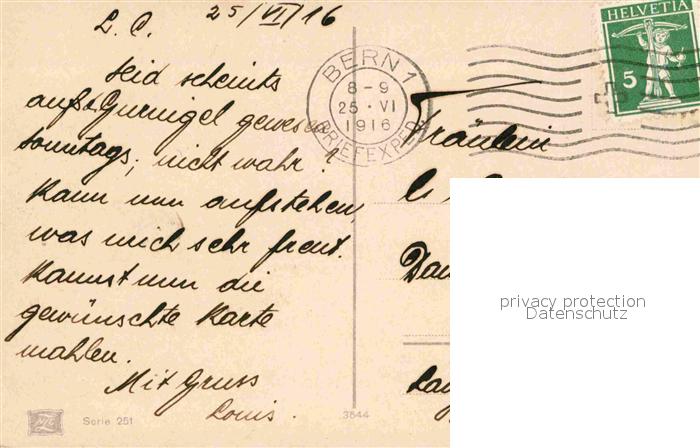 L. C. 25/VI/16
Seid scheints
auf Gurnigel gewesen
Sonntags, nicht wahr?
Kann nun aufstehen,
was mich sehr freut.
Kannst nun die
gewünschte Karte
mahlen.
Mit Gruss
Louis.
Serie 251
3644
HELVETIA
5
BERN 1
8-9
25. VI
1916
BRIEFEXPED
Fräulein
privacy protection
Datenschutz